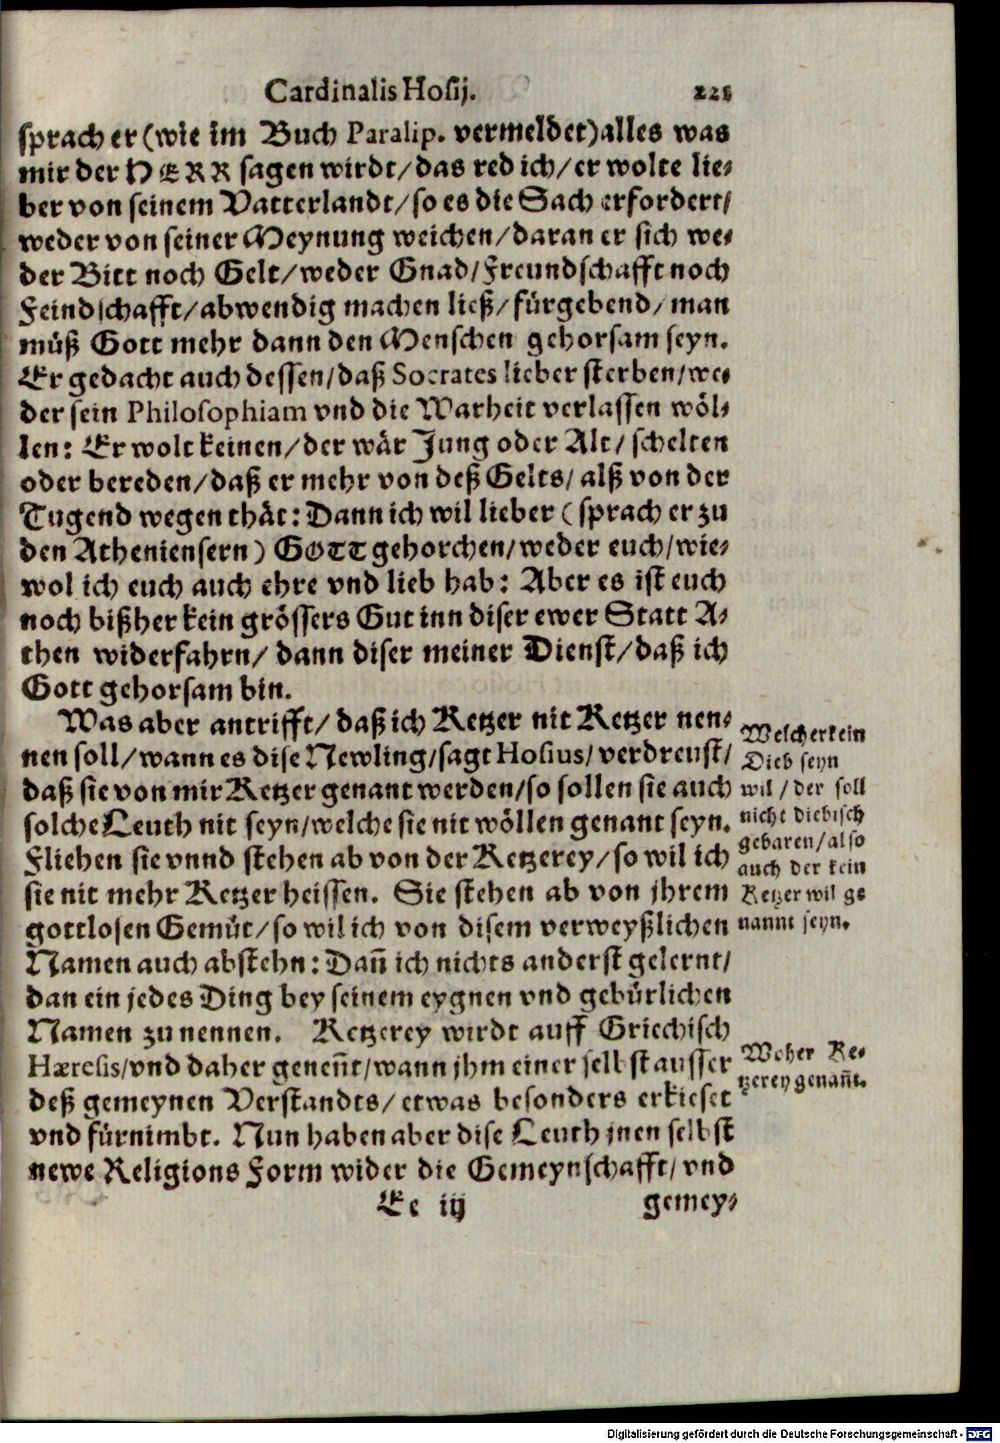 Cardinalis Hosij. 221
sprach er (wie im Buch Paralip. vermeldet) alles was
mir der HERR sagen wirdt/ das red ich/ er wolte lie-
ber von seinem Vatterlandt/ so es die Sach erfordert/
weder von seiner Meynung weichen/ daran er sich we-
der Bitt noch Gelt/ weder Gnad/ Freundschafft noch
Feindschafft/ abwendig machen ließ/ fürgebend/ man
müß Gott mehr dann den Menschen gehorsam seyn.
Er gedacht auch dessen/ daß Socrates lieber sterben/ we-
der sein Philosophiam vnd die Warheit verlassen wöl-
len: Er wolt keinen/ der wär Jung oder Alt/ schelten
oder bereden/ daß er mehr von deß Gelts/ alß von der
Tugend wegen thät: Dann ich wil lieber (sprach er zu
den Atheniensern) GOTT gehorchen/ weder euch/ wie-
wol ich euch auch ehre vnd lieb hab: Aber es ist euch
noch bißher kein grössers Gut inn diser ewer Statt A-
then widerfahrn/ dann diser meiner Dienst/ daß ich
Gott gehorsam bin.
Was aber antrifft/ daß ich Ketzer nit Ketzer nen-
nen soll/ wann es dise Newling/ sagt Hosius/ verdreust/
daß sie von mir Ketzer genant werden/ so sollen sie auch
solche Leuth nit seyn/ welche sie nit wöllen genant seyn.
Fliehen sie vnnd stehen ab von der Ketzerey/ so wil ich
sie nit mehr Ketzer heissen. Sie stehen ab von jhrem
gottlosen Gemüt/ so wil ich von disem verweyßlichen
Namen auch abstehn: Dañ ich nichts anderst gelernt/
dan ein jedes Ding bey seinem eygnen vnd gebürlichen
Namen zu nennen. Ketzerey wirdt auff Griechisch
Hæresis/ vnd daher geneñt/ wann jhm einer selbst ausser
deß gemeynen Verstandts/ etwas besonders erkieset
vnd fürnimbt. Nun haben aber dise Leuth jnen selbst
newe Religions Form wider die Gemeynschafft/ vnd
Ee iij gemey-
Welcher kein
Dieb seyn
wil/ der soll
nicht diebisch
gebaren/ also
auch der kein
Ketzer wil ge
nannt seyn.
Woher Ke-
tzerey genañt.
Digitalisierung gefördert durch die Deutsche Forschungsgemeinschaft - DFG